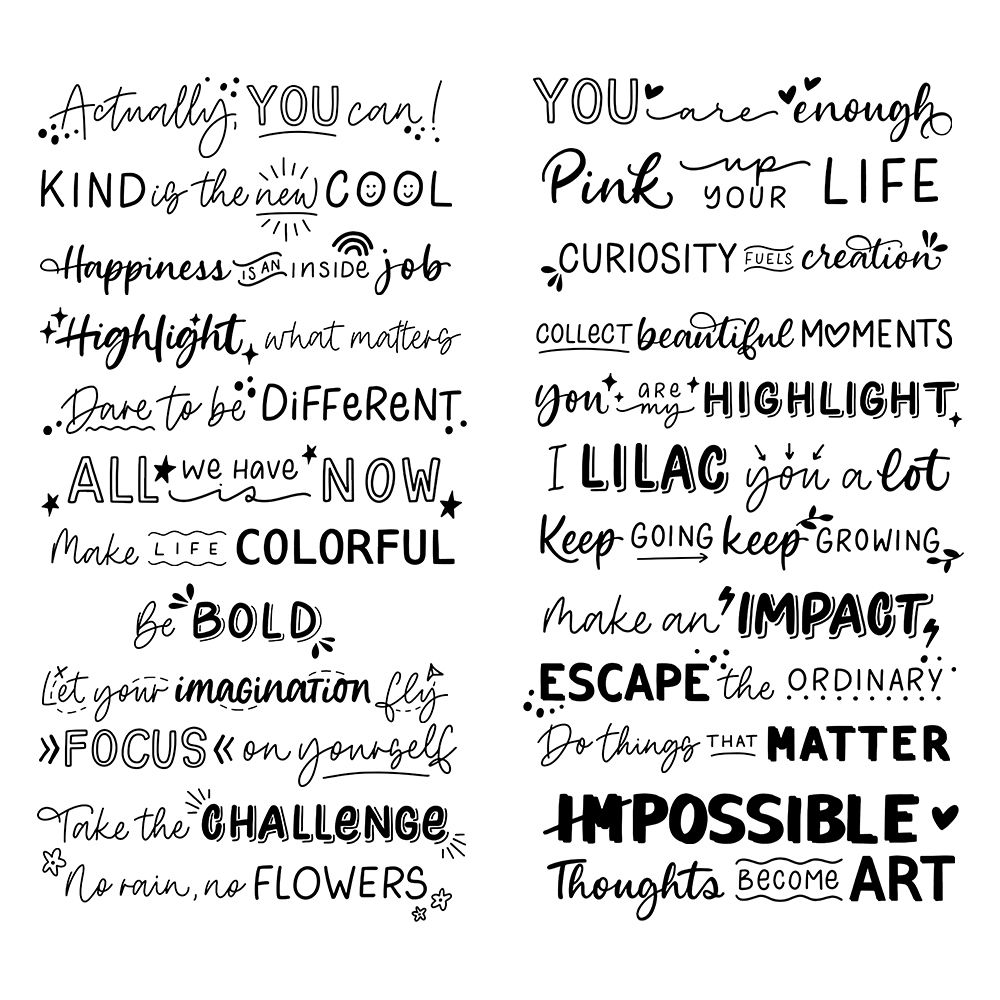 Actually, YOU can!
KIND is the new COOL
Happiness IS AN INSiDe job
Highlight, what matters
Dare to be DiFFeReNT
ALL We HAVe is NOW
Make LIFE COLORFUL
Be BOLD
Let your imagination fly
»FOCUS« on yourself
Take the CHALLeNGe
No rain, no FLOWERS
YOU are enough
Pink up YOUR LIFE
CURIOSITY FUELS creation
COLLECT beautiful MOMENTS
You ARE my HIGHLIGHT
I LILAC you a lot
Keep GOING keep GROWING
Make an IMPACT
ESCAPE the ORDINARY
Do things THAT MATTER
IMPOSSIBLE
Thoughts BeCOMe ART